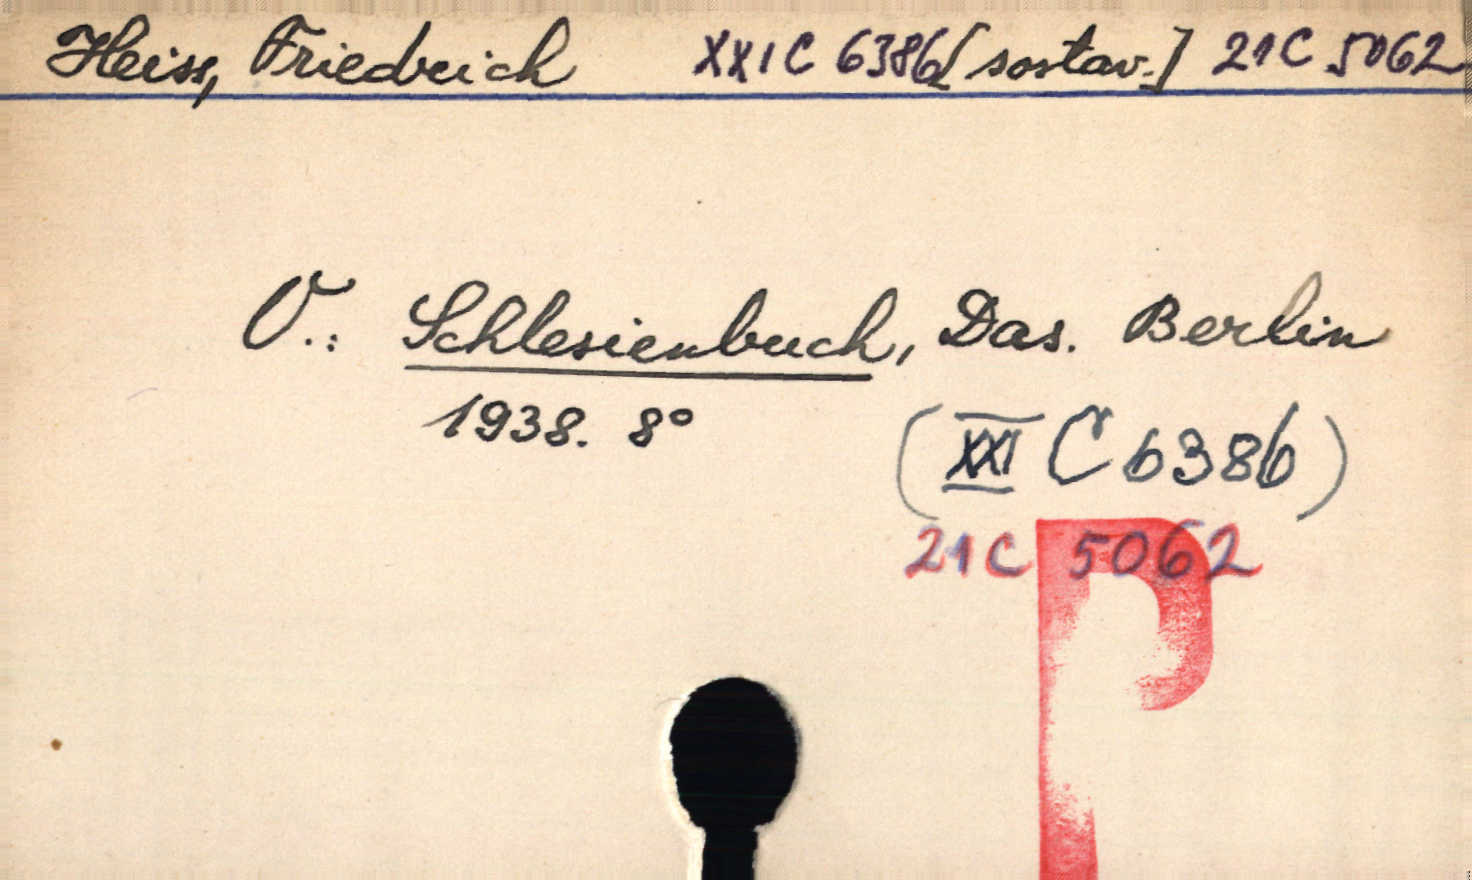 Heiss, Friedreich XXIC 6386 [sostav.] 21C 5062
V.: Schlesienbuch, Das. Berlin
1938. 8°
(XXI C 6386)
21C 5062
P